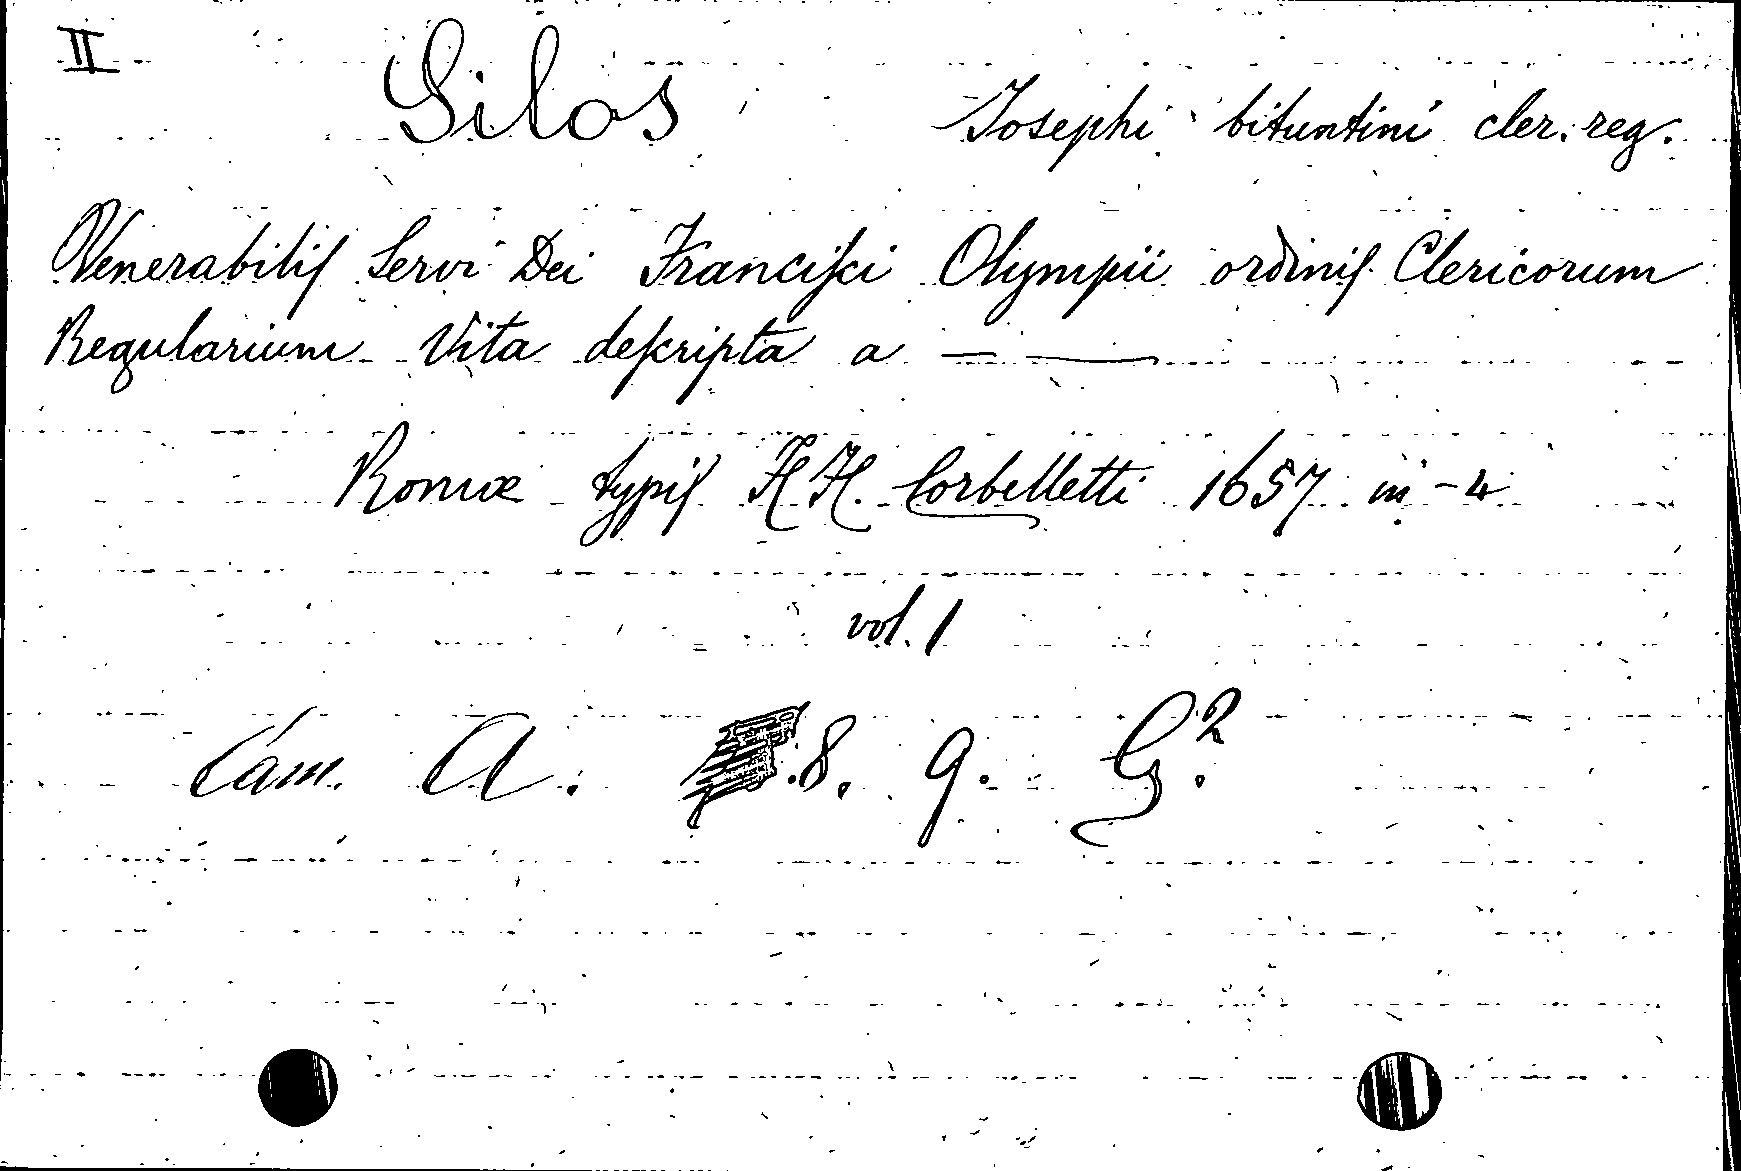 II
Silos Josephi bituntini cler. reg.
Venerabilis Servi Dei Francisci Olympii ordinis Clericorum
Regularium Vita descripta a — —
Romæ typis HH. Corbelletti 1657 in-4
vol. 1
Cam. A. 8. 9. G².